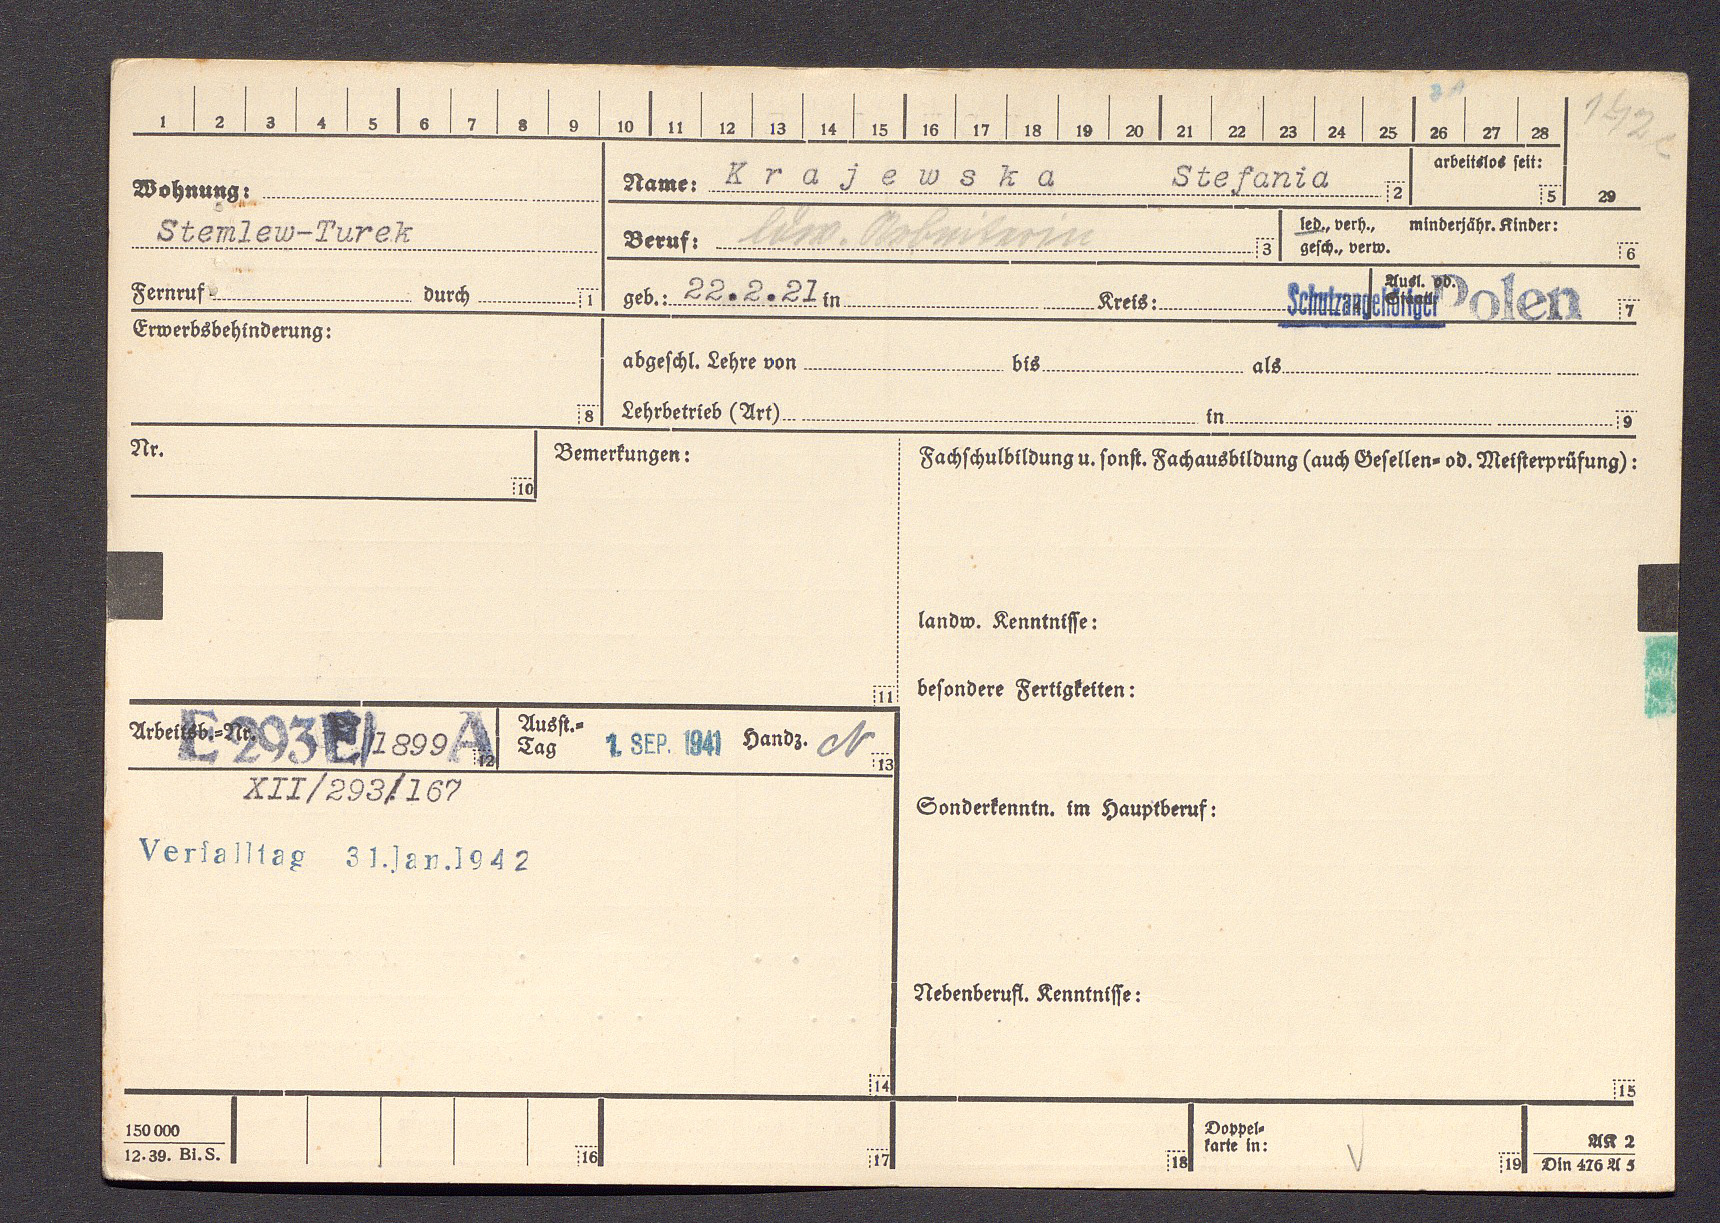 1 2 3 4 5 6 7 8 9 10 11 12 13 14 15 16 17 18 19 20 21 22 23 24 25 26 27 28
Wohnung:
Name: Krajewska Stefania 2
arbeitslos seit:
5 29
Stemlew-Turek
Beruf: ldw. Arbeiterin 3
led., verh., minderjähr. Kinder:
gesch., verw. 6
Fernruf durch 1
geb.: 22.2.21 in Kreis:
Schutzangehöriger
Ausl. od.
Staatl.
Polen 7
Erwerbsbehinderung:
8
abgeschl. Lehre von bis als
Lehrbetrieb (Art) in 9
Nr.
10
Bemerkungen:
11
Fachschulbildung u. sonst. Fachausbildung (auch Gesellen- od. Meisterprüfung):
landw. Kenntnisse:
besondere Fertigkeiten:
Arbeitsb.-Nr. E 293 /1899 A 12
Ausst.-
Tag 1. SEP. 1941 Handz. 13
XII/293/167
Verfalltag 31.Jan.1942
14
Sonderkenntn. im Hauptberuf:
Nebenberufl. Kenntnisse:
15
150 000
12.39. Bi.S.
16 17 18
Doppel-
karte in:
19
AK 2
Din 476 A 5